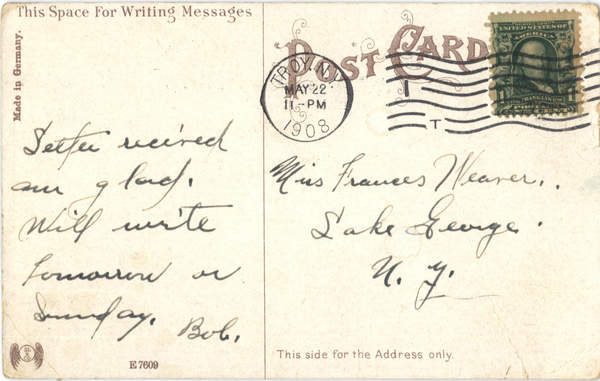 This Space For Writing Messages
Made in Germany.
POST CARD
TROY, N.Y.
MAY 22
11-PM
1908
T
Letter received
am glad.
Will write
tomorrow or
Sunday. Bob.
Miss Frances Weaver.
Lake George.
N. Y.
E 7609
This side for the Address only.